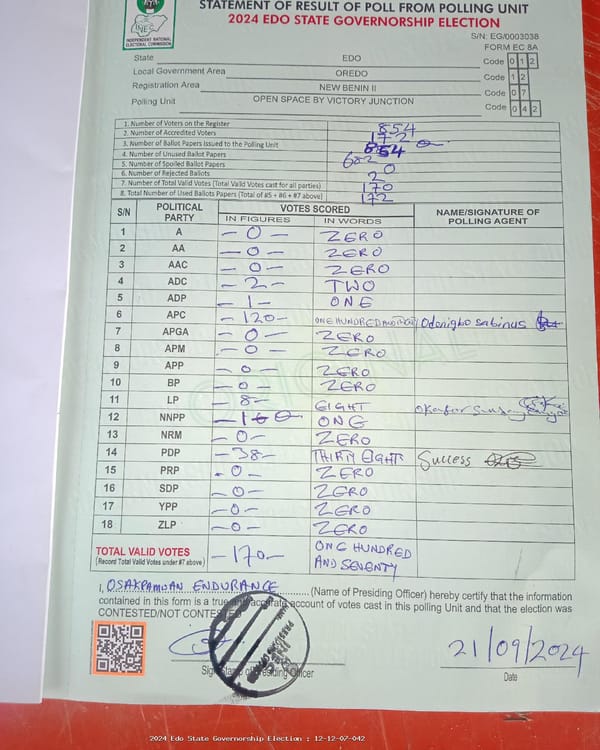 STATEMENT OF RESULT OF POLL FROM POLLING UNIT
2024 EDO STATE GOVERNORSHIP ELECTION
INEC
INDEPENDENT NATIONAL ELECTORAL COMMISSION
S/N: EG/0003038
FORM EC 8A
State EDO Code 0 1 2
Local Government Area OREDO Code 1 2
Registration Area NEW BENIN II Code 0 7
Polling Unit OPEN SPACE BY VICTORY JUNCTION Code 0 4 2
1. Number of Voters on the Register 854
2. Number of Accredited Voters 172
3. Number of Ballot Papers Issued to the Polling Unit 854
4. Number of Unused Ballot Papers 682
5. Number of Spoiled Ballot Papers 0
6. Number of Rejected Ballots 2
7. Number of Total Valid Votes (Total Valid Votes cast for all parties) 170
8. Total Number of Used Ballots Papers (Total of #5 + #6 + #7 above) 172
S/N POLITICAL PARTY VOTES SCORED NAME/SIGNATURE OF POLLING AGENT
IN FIGURES IN WORDS
1 A - 0 - ZERO
2 AA - 0 - ZERO
3 AAC - 0 - ZERO
4 ADC - 2 - TWO
5 ADP - 1 - ONE
6 APC - 120 - ONE HUNDRED AND Odonigbo Sabinus
7 APGA - 0 - ZERO
8 APM - 0 - ZERO
9 APP - 0 - ZERO
10 BP - 0 - ZERO
11 LP - 8 - EIGHT Okafor Sunday
12 NNPP ONE
13 NRM - 0 - ZERO
14 PDP - 38 - THIRTY EIGHT Success
15 PRP - 0 - ZERO
16 SDP - 0 - ZERO
17 YPP - 0 - ZERO
18 ZLP - 0 - ZERO
TOTAL VALID VOTES - 170 - ONE HUNDRED
(Record Total Valid Votes under #7 above) AND SEVENTY
I, OSAKPAMWAN ENDURANCE (Name of Presiding Officer) hereby certify that the information
contained in this form is a true and accurate account of votes cast in this polling Unit and that the election was
CONTESTED/NOT CONTESTED
21/09/2024
Date
2024 Edo State Governorship Election : 12-12-07-042